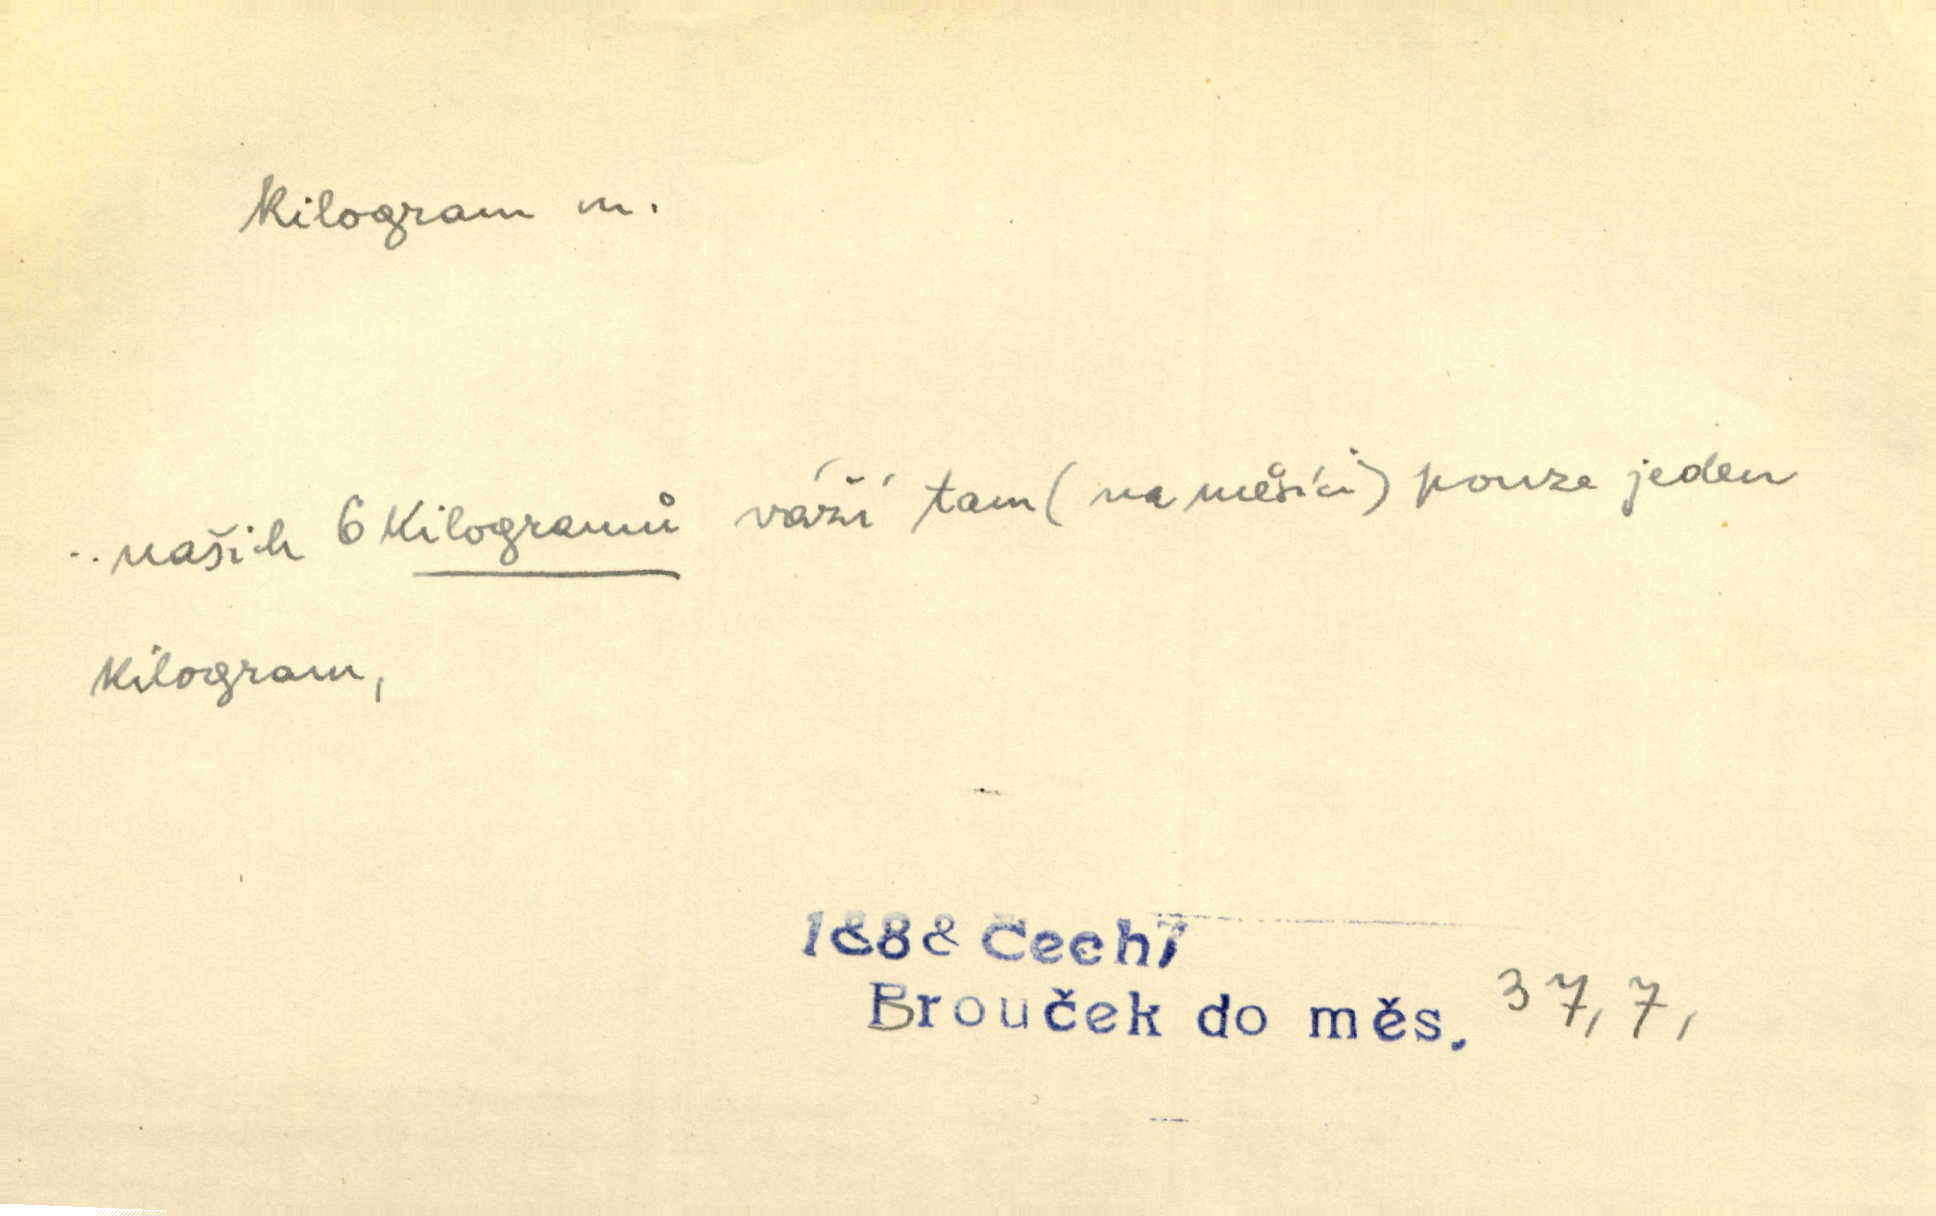 kilogram m.
..našich 6 kilogramů váží tam (na měsíci) pouze jeden
kilogram,
1888 Čech7
Brouček do měs. 37, 7,